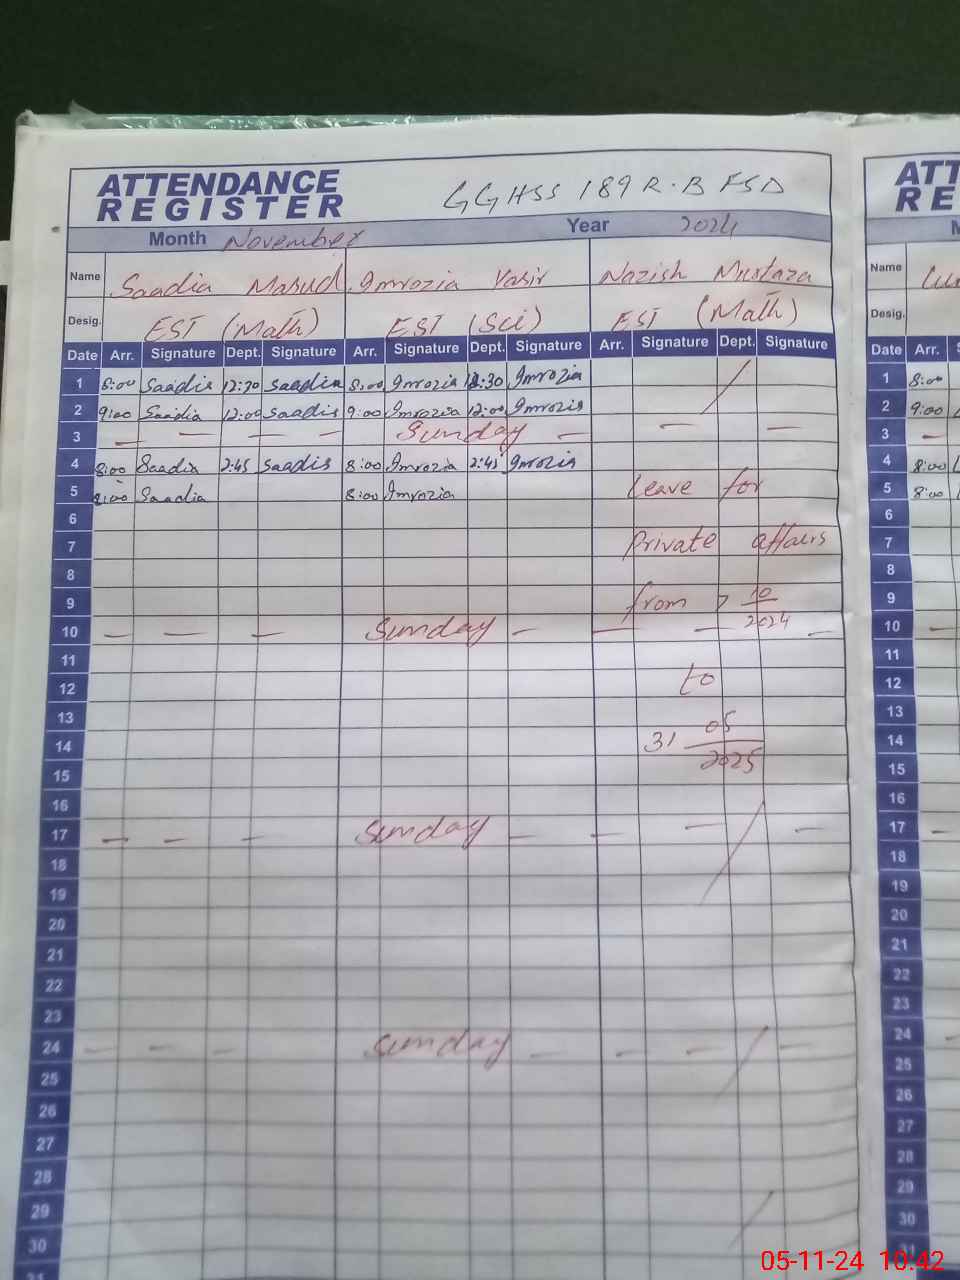 ATTENDANCE
REGISTER
GGHSS 189 R.B FSD
Month November Year 2024
Name Saadia Masud Imrozia Yasir Nazish Mustaza
Desig. EST (Math) EST (Sci) EST (Math)
Date Arr. Signature Dept. Signature Arr. Signature Dept. Signature Arr. Signature Dept. Signature
1 8:00 Saadia 12:30 Saadia 8:00 Imrozia 12:30 Imrozia
2 9:00 Saadia 12:00 Saadia 9:00 Imrozia 12:00 Imrozia
3 — — — — Sunday — — —
4 8:00 Saadia 2:45 Saadia 8:00 Imrozia 2:45 Imrozia
5 8:00 Saadia 8:00 Imrozia Leave for
6
7 Private affairs
8
9 from 7 10/2024
10 — — — Sunday — — — —
11
12 to
13
14 31 05/2025
15
16
17 — — — Sunday — — — —
18
19
20
21
22
23
24 — — — Sunday — — — —
25
26
27
28
29
30
31
ATT
RE
M
Name
Desig.
Date Arr. S
1 8:00
2 9:00
3 —
4 8:00
5 8:00
6
7
8
9
10 —
11
12
13
14
15
16
17 —
18
19
20
21
22
23
24
25
26
27
28
29
30
31
05-11-24 10:42